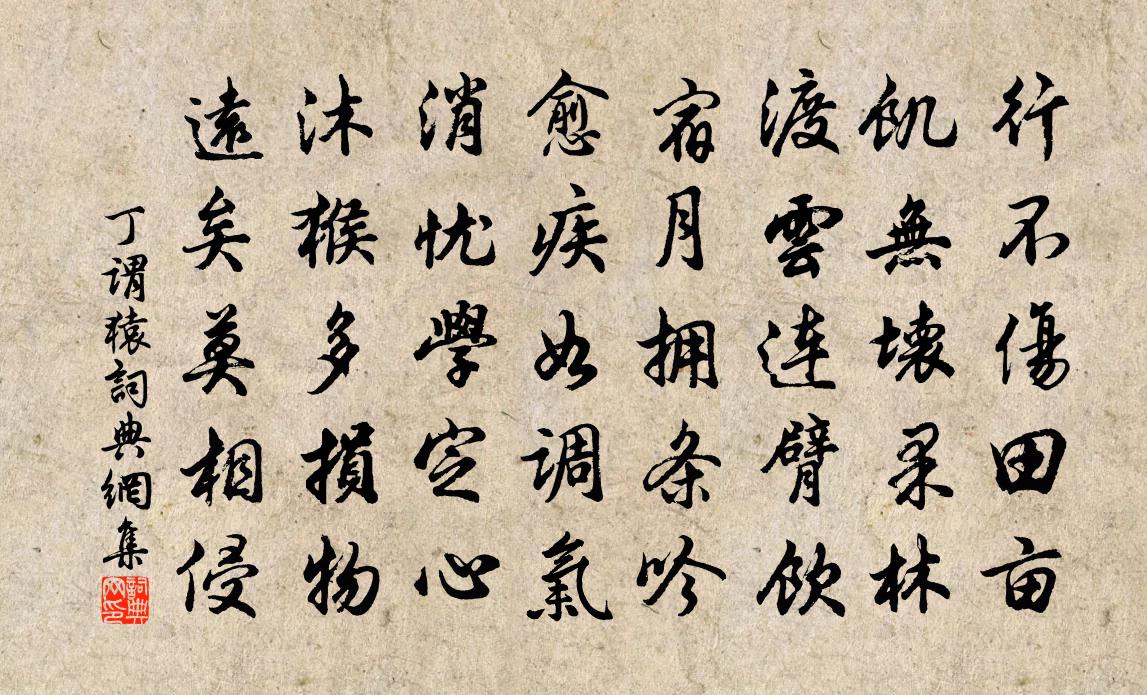 行不傷田亩
飢無壞果林
渡雲连臂飲
宿月拥条吟
愈疾如調氣
消忧學定心
沐猴多損物
遠矣莫相侵
丁謂猿詞典網集
詞典网印